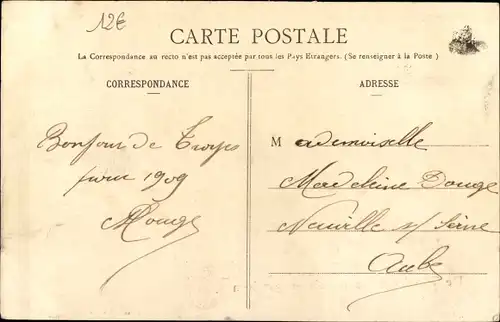 12€
CARTE POSTALE
La Correspondance au recto n'est pas acceptée par tous les Pays Etrangers. (Se renseigner à la Poste)
CORRESPONDANCE
Bonjour de Troyes
1909
ADRESSE
Mademoiselle
Madeleine
Neuville s/ Seine
Aube